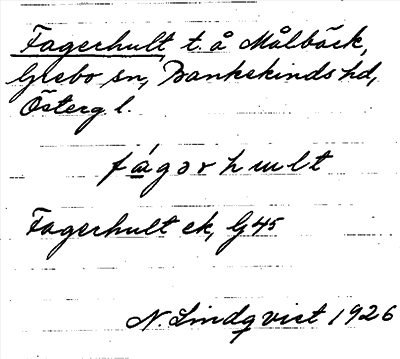 Fagerhult t. å Målbäck,
Grebo sn, Bankekinds hd,
Östergl.
fágərhult
Fagerhult ek, G45
N. Lindqvist 1926